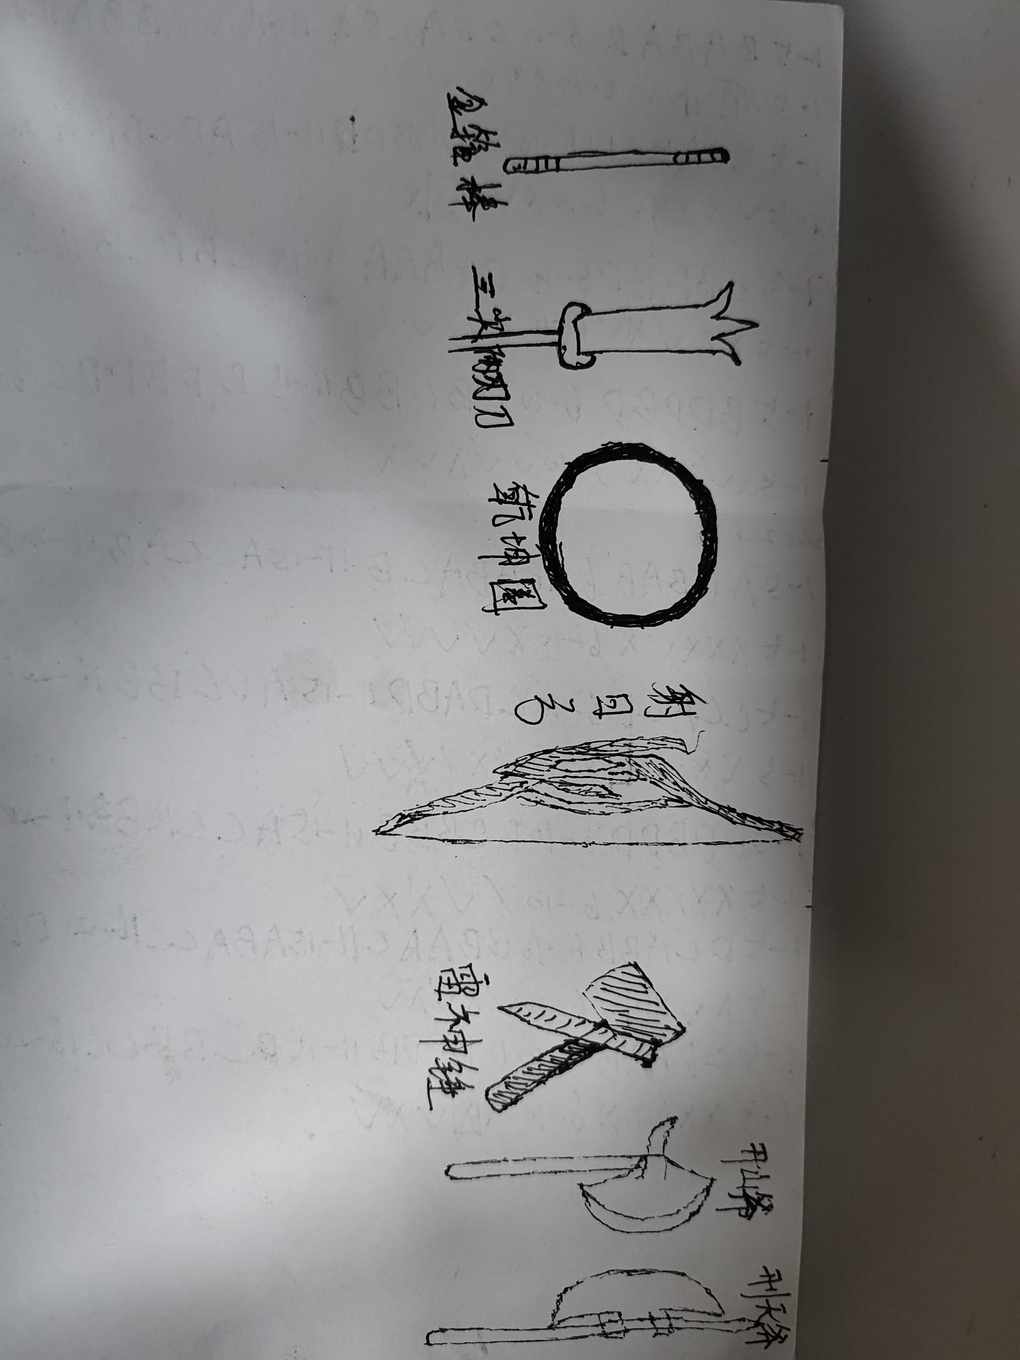 金箍棒
三尖两刃刀
乾坤圈
射日弓
雷神锤
开山斧
刑天斧